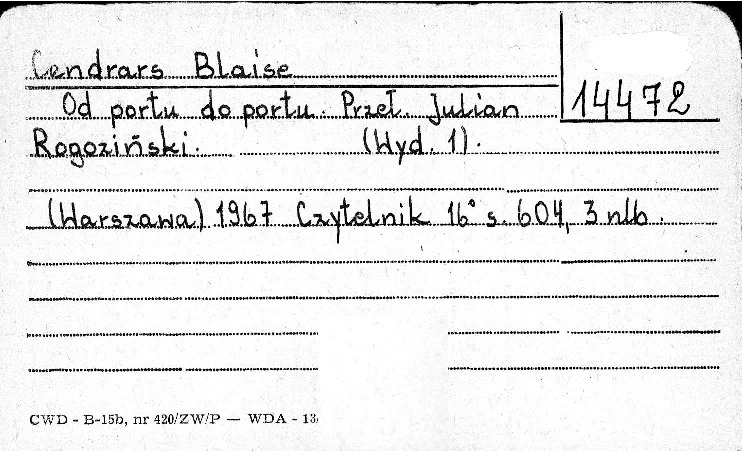 Cendrars Blaise
14472
Od portu do portu. Przeł. Julian
Rogoziński. (Wyd. 1).
(Warszawa) 1967 Czytelnik 16° s. 604, 3 nlb.
CWD - B-15b, nr 420/ZW/P — WDA - 13/